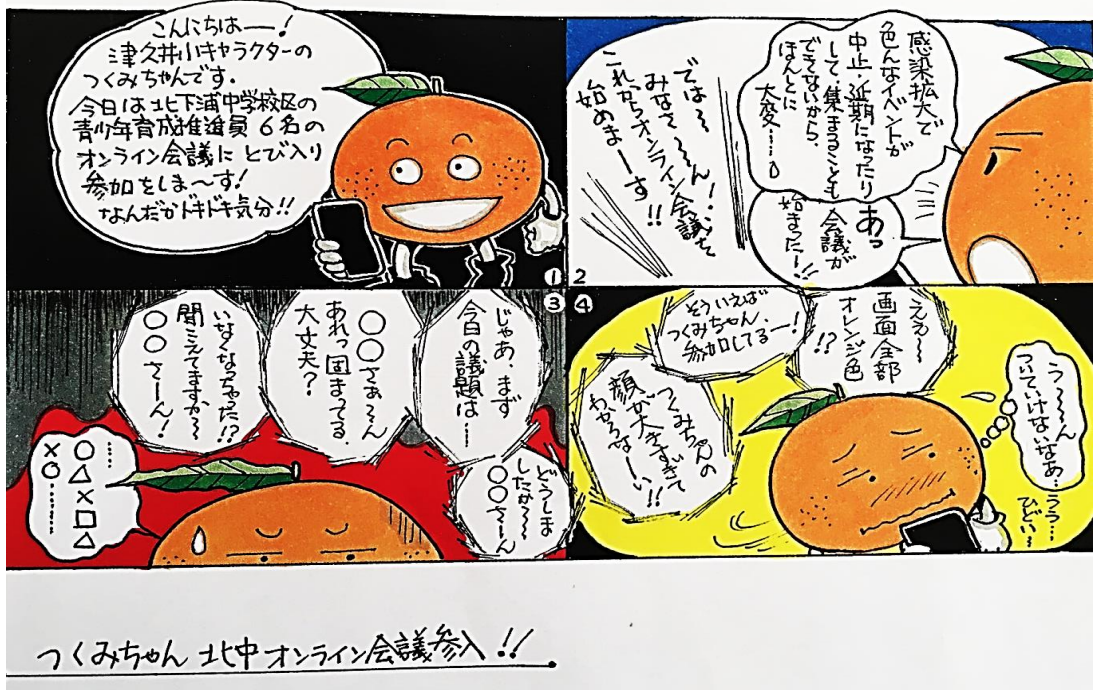 こんにちはー!
津久井小キャラクターの
つくみちゃんです.
今日は北下浦中学校区の
青少年育成推進員6名の
オンライン会議にとび入り
参加をしま〜す!
なんだかドキドキ気分!!
①
感染拡大で
色んなイベントが
中止・延期になったり
して、集まることも
できないから、
ほんとに
大変……。
あっ
会議が
始まったー!!
では〜
みなさ〜〜ん!
これからオンライン会議を
始めまーす!!
2
③
じゃあ、まず
今日の議題は……
〇〇さぁ〜ん
あれっ固まってる
大丈夫?
いなくなっちゃった!?
聞こえてますか〜
〇〇さーん!
どうしま
したか〜〜
〇〇さーん
……
〇△×□△
×〇………
④
ええ〜〜
画面全部
オレンジ色
!?
そういえば
つくみちゃん、
参加してるー!
つくみちゃんの
顔が大きすぎて
わからなーい!!
う〜〜〜ん
ついていけないなぁ…
うう……
ひどい〜
つくみちゃん 北中オンライン会議参入!!